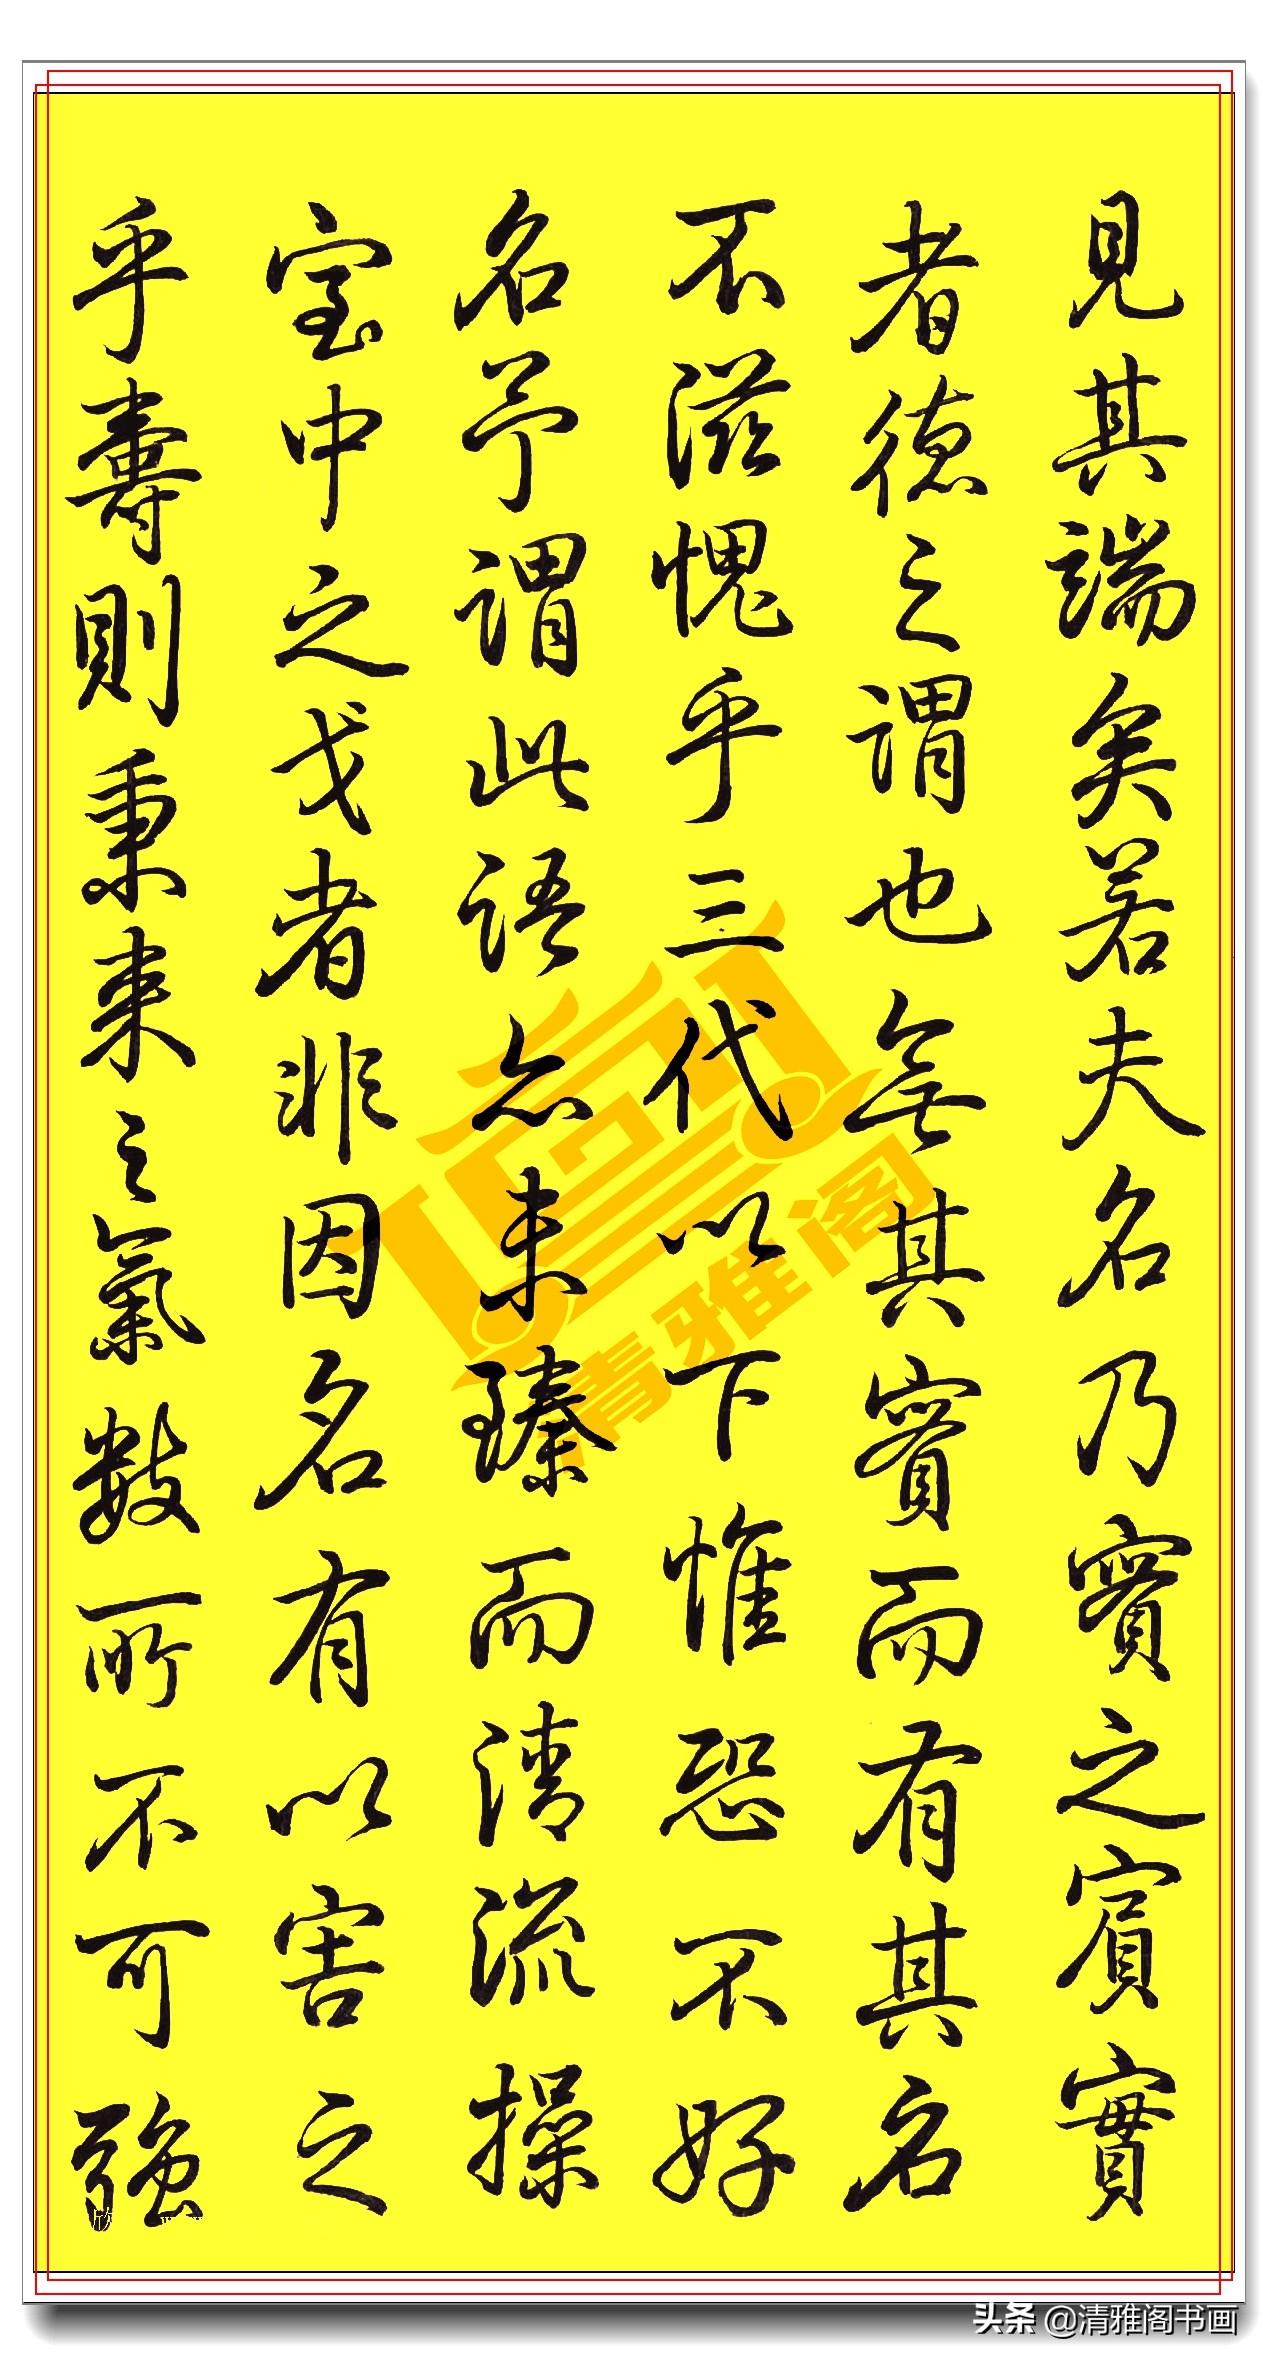 見其端矣若夫名乃實之賓實
者德之謂也無其實而有其名
不滋愧乎三代以下惟恐不好
名予謂此語亦未臻而清流操
室中之戈者非因名有以害之
乎壽則秉来之氣數所不可強
清雅阁
头条 @清雅阁书画